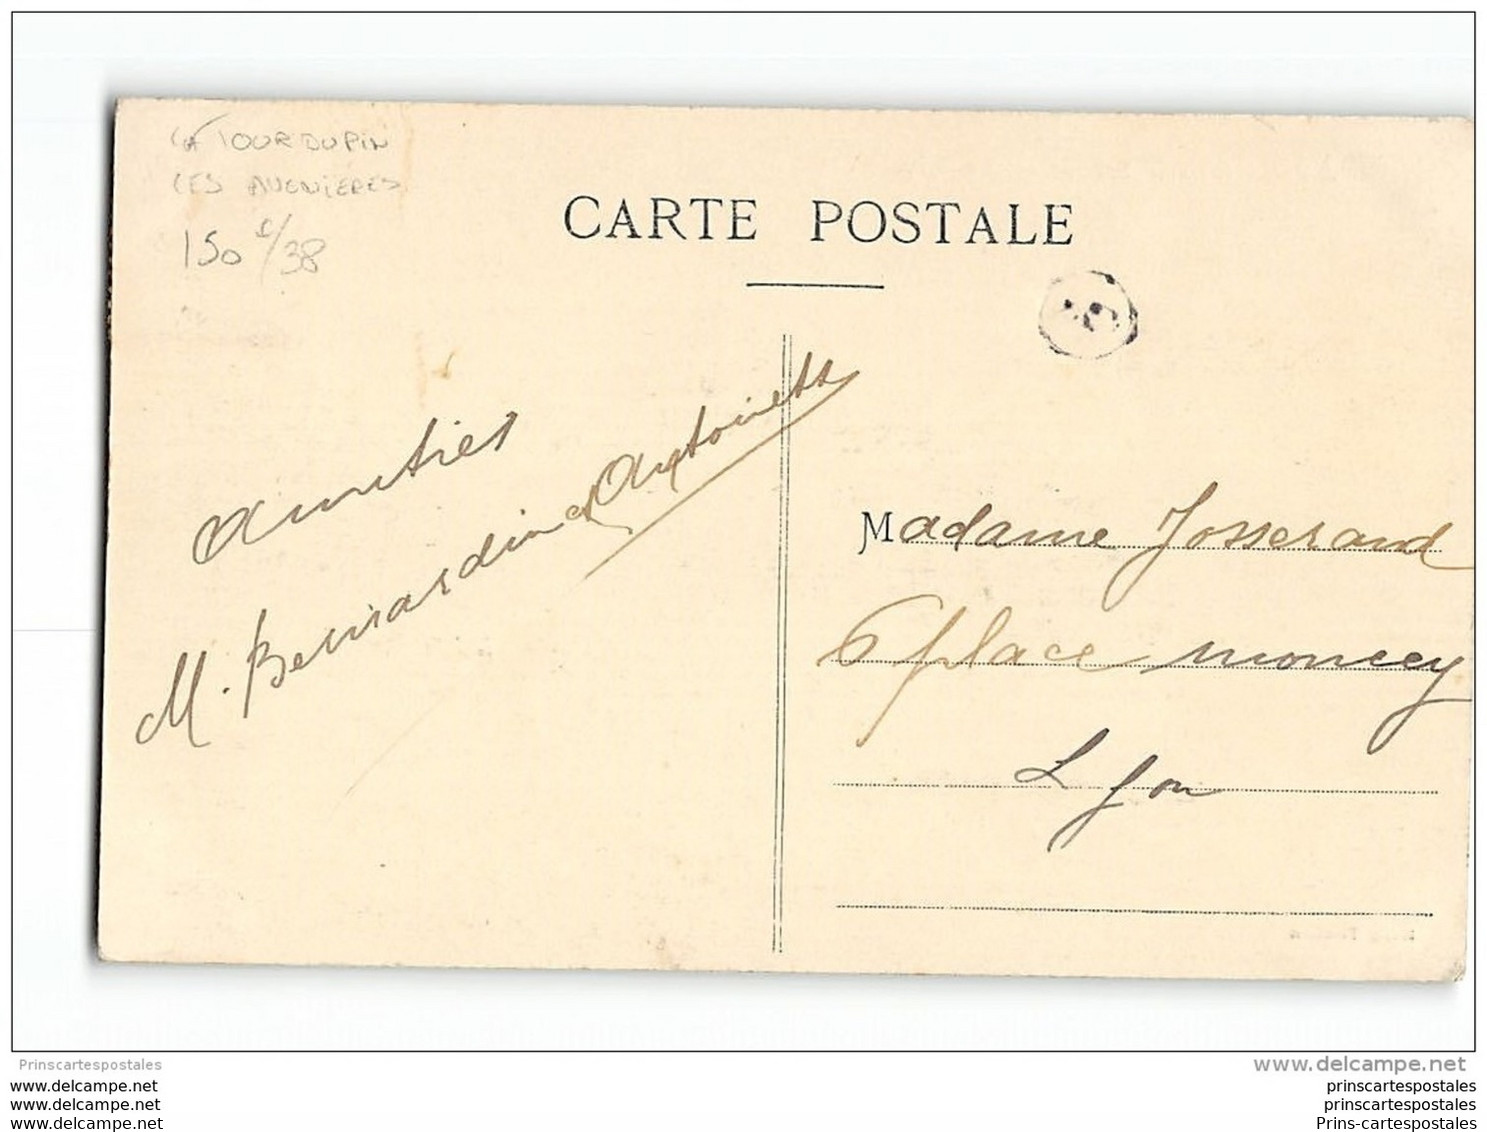 LA TOUR DU PIN
LES AVENIERES
150 €/38
CARTE POSTALE
Amitiés
M. Bernardin et Antoinette
Madame Josserand
6 place moncey
Lyon
Prinscartespostales
www.delcampe.net
www.delcampe.net
prinscartespostales
www.delcampe.net
prinscartespostales
www.delcampe.net
Prins-cartespostales